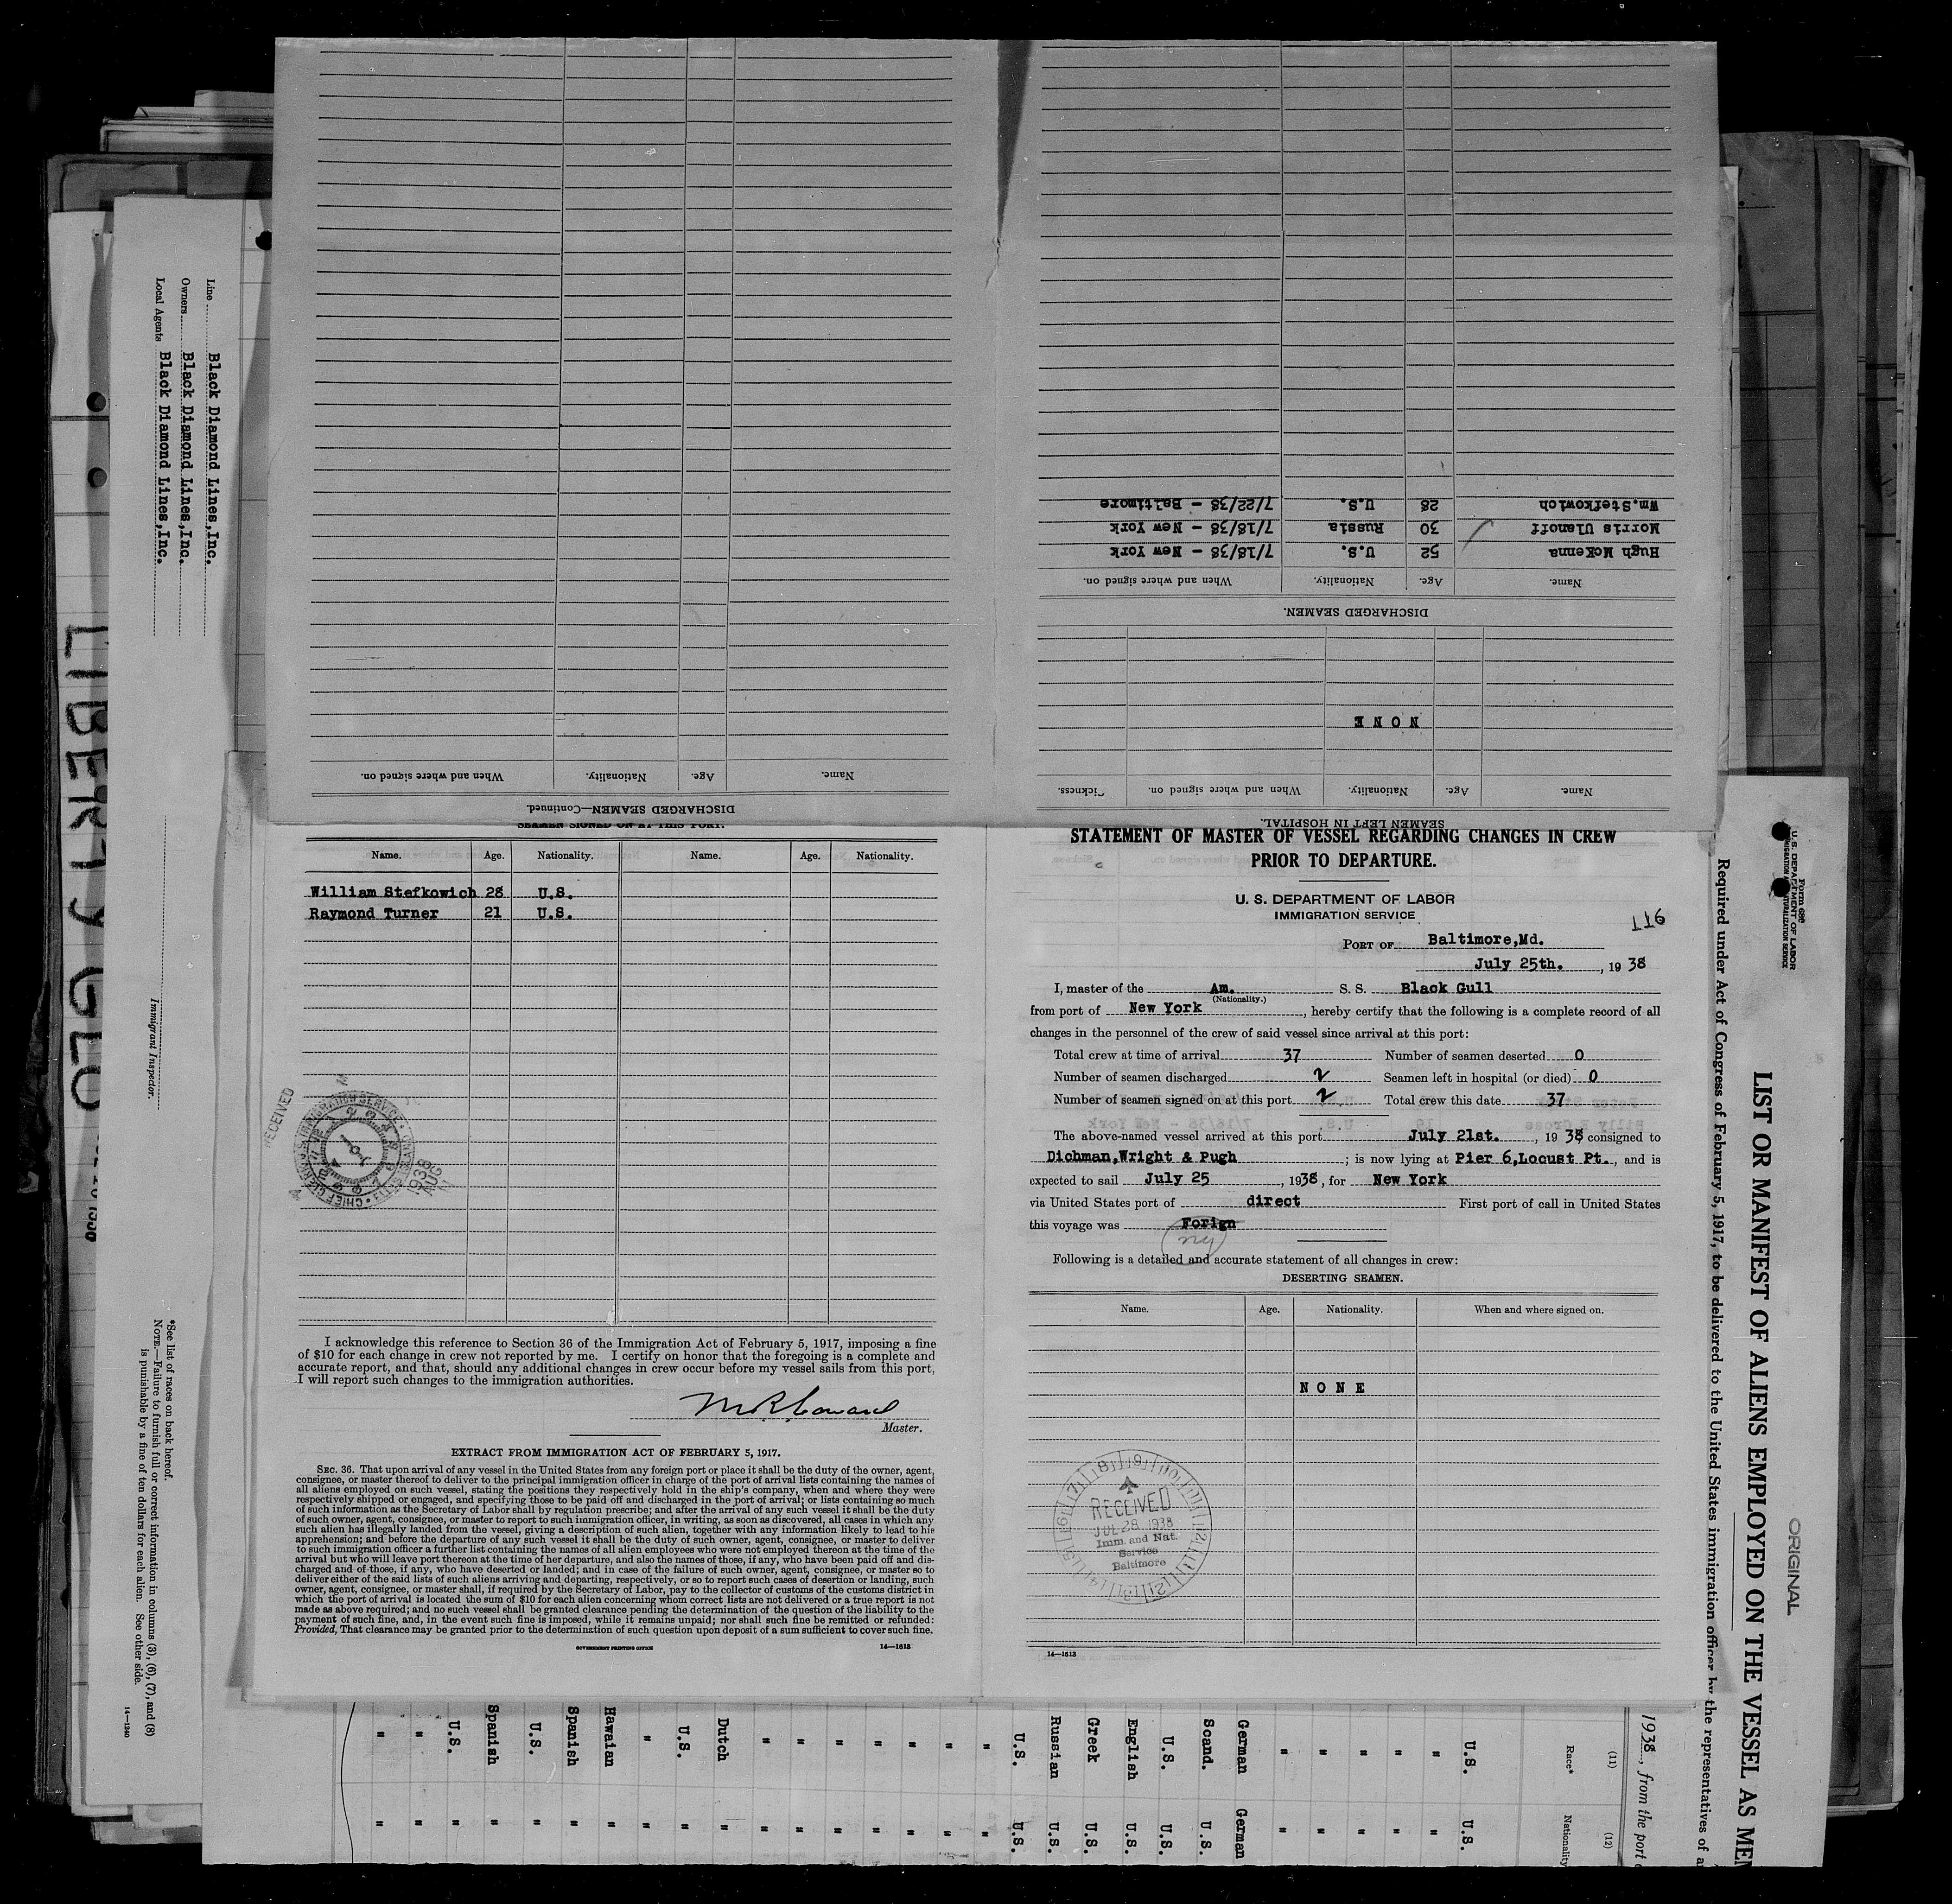 Line Black Diamond Lines,Inc.
Owners Black Diamond Lines,Inc.
Local Agents Black Diamond Lines,Inc.
Immigrant Inspector.
*See list of races on back hereof.
NOTE.—Failure to furnish full or correct information in columns (3), (6), (7), and (8)
is punishable by a fine of ten dollars for each alien. See other side.
14—1240
LIBERTY GLO
SEAMEN LEFT IN HOSPITAL.
Name. Age. Nationality. When and where signed on. Sickness.
NONE
DISCHARGED SEAMEN.
Name. Age. Nationality. When and where signed on.
Hugh McKenna 52 U.S. 7/18/38 - New York
Morris Ulanoff 30 Russia 7/18/38 - New York
Wm.Stefkowich 28 U.S. 7/22/38 - Baltimore
DISCHARGED SEAMEN—Continued.
Name. Age. Nationality. When and where signed on.
SEAMEN SIGNED ON AT THIS PORT.
Name. Age. Nationality. Name. Age. Nationality.
William Stefkowich 28 U.S.
Raymond Turner 21 U.S.
RECEIVED
1938 AUG
I acknowledge this reference to Section 36 of the Immigration Act of February 5, 1917, imposing a fine
of $10 for each change in crew not reported by me. I certify on honor that the foregoing is a complete and
accurate report, and that, should any additional changes in crew occur before my vessel sails from this port,
I will report such changes to the immigration authorities.
Master.
EXTRACT FROM IMMIGRATION ACT OF FEBRUARY 5, 1917.
SEC. 36. That upon arrival of any vessel in the United States from any foreign port or place it shall be the duty of the owner, agent,
consignee, or master thereof to deliver to the principal immigration officer in charge of the port of arrival lists containing the names of
all aliens employed on such vessel, stating the positions they respectively hold in the ship's company, when and where they were
respectively shipped or engaged, and specifying those to be paid off and discharged in the port of arrival; or lists containing so much
of such information as the Secretary of Labor shall by regulation prescribe; and after the arrival of any such vessel it shall be the duty
of such owner, agent, consignee, or master to report to such immigration officer, in writing, as soon as discovered, all cases in which any
such alien has illegally landed from the vessel, giving a description of such alien, together with any information likely to lead to his
apprehension; and before the departure of any such vessel it shall be the duty of such owner, agent, consignee, or master to deliver
to such immigration officer a further list containing the names of all alien employees who were not employed thereon at the time of the
arrival but who will leave port thereon at the time of her departure, and also the names of those, if any, who have been paid off and dis-
charged and of those, if any, who have deserted or landed; and in case of the failure of such owner, agent, consignee, or master so to
deliver either of the said lists of such aliens arriving and departing, respectively, or so to report such cases of desertion or landing, such
owner, agent, consignee, or master shall, if required by the Secretary of Labor, pay to the collector of customs of the customs district in
which the port of arrival is located the sum of $10 for each alien concerning whom correct lists are not delivered or a true report is not
made as above required; and no such vessel shall be granted clearance pending the determination of the question of the liability to the
payment of such fine, and, in the event such fine is imposed, while it remains unpaid; nor shall such fine be remitted or refunded:
Provided, That clearance may be granted prior to the determination of such question upon deposit of a sum sufficient to cover such fine.
GOVERNMENT PRINTING OFFICE 14—1613
STATEMENT OF MASTER OF VESSEL REGARDING CHANGES IN CREW
PRIOR TO DEPARTURE.
U. S. DEPARTMENT OF LABOR
IMMIGRATION SERVICE
116
PORT OF Baltimore,Md.
July 25th. , 19 38
I, master of the Am. S. S. Black Gull
(Nationality.)
from port of New York , hereby certify that the following is a complete record of all
changes in the personnel of the crew of said vessel since arrival at this port:
Total crew at time of arrival 37 Number of seamen deserted 0
Number of seamen discharged 2 Seamen left in hospital (or died) 0
Number of seamen signed on at this port 2 Total crew this date 37
The above-named vessel arrived at this port July 21st. , 19 38 consigned to
Dichman,Wright & Pugh ; is now lying at Pier 6,Locust Pt. , and is
expected to sail July 25 , 1938, for New York
via United States port of direct First port of call in United States
this voyage was Forign
ny
Following is a detailed and accurate statement of all changes in crew:
DESERTING SEAMEN.
Name. Age. Nationality. When and where signed on.
NONE
RECEIVED
JUL 28 1938
Imm. and Nat.
Service
Baltimore
14—1613
Form 686
U.S. DEPARTMENT OF LABOR
IMMIGRATION AND NATURALIZATION SERVICE
ORIGINAL
LIST OR MANIFEST OF ALIENS EMPLOYED ON THE VESSEL AS MEM
Required under Act of Congress of February 5, 1917, to be delivered to the United States immigration officer by the representatives of a
1938, from the port o
(11) (12)
Race* Nationality
U.S. U.S.
" "
" "
" "
" "
" "
German German
Scand. U.S.
U.S. U.S.
English U.S.
Greek U.S.
Russian U.S.
U.S. U.S.
" "
" "
" "
" "
" "
" "
Dutch "
U.S. "
" "
Hawaian "
Spanish "
U.S. "
Spanish "
U.S. "
" "
" "